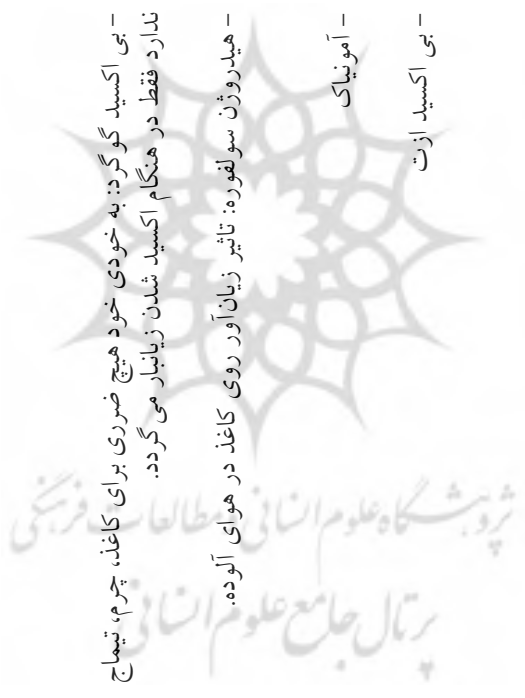 - بی اکسید گوگرد: به خودی خود هیچ ضرری برای کاغذ، چرم، تیماج
ندارد فقط در هنگام اکسید شدن زیانبار می گردد.
- هیدروژن سولفوره: تاثیر زیان‌آور روی کاغذ در هوای آلوده.
- آمونیاک
- بی اکسید ازت
پژوهشگاه علوم انسانی و مطالعات فرهنگی
پرتال جامع علوم انسانی